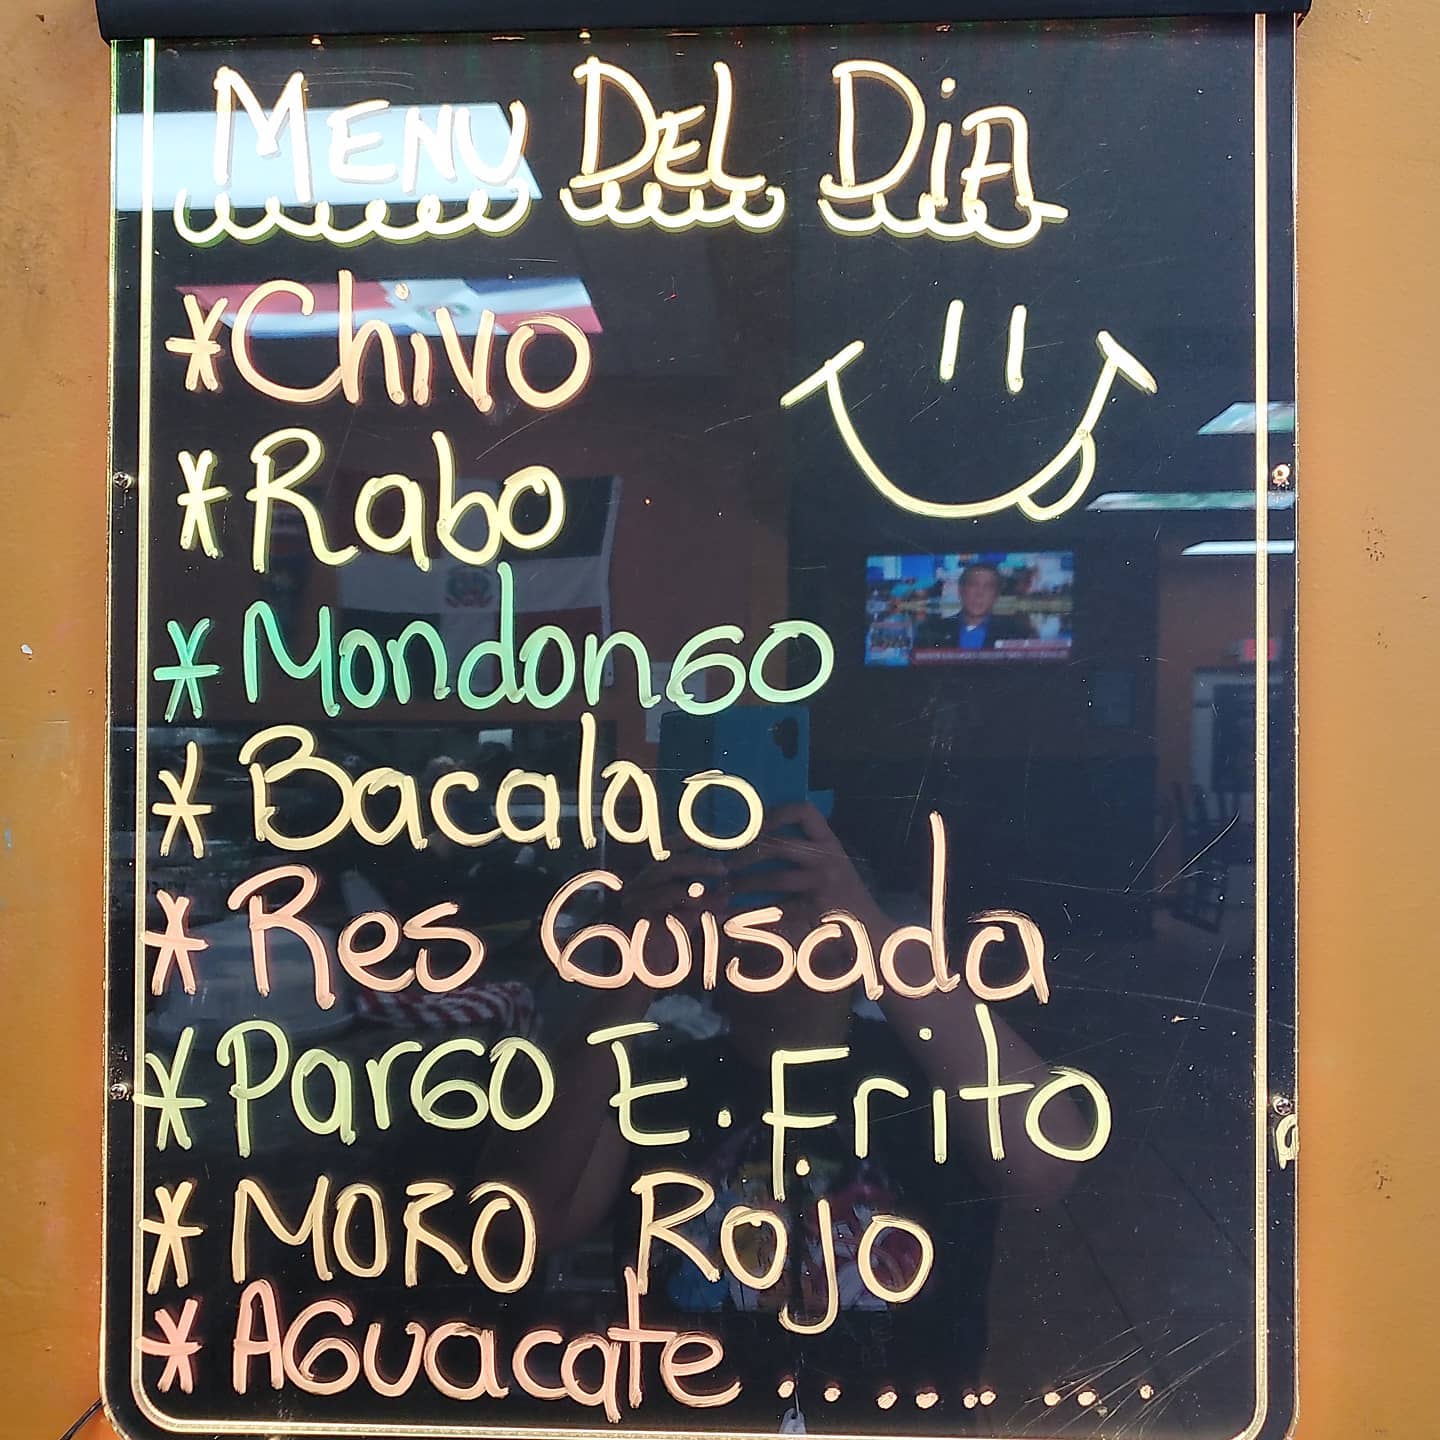 MENU DEL DiA
*Chivo
*Rabo
*MondonGO
*Bacalao
*Res Guisada
*ParGO E. Frito
*MORO Rojo
*AGuacate..........